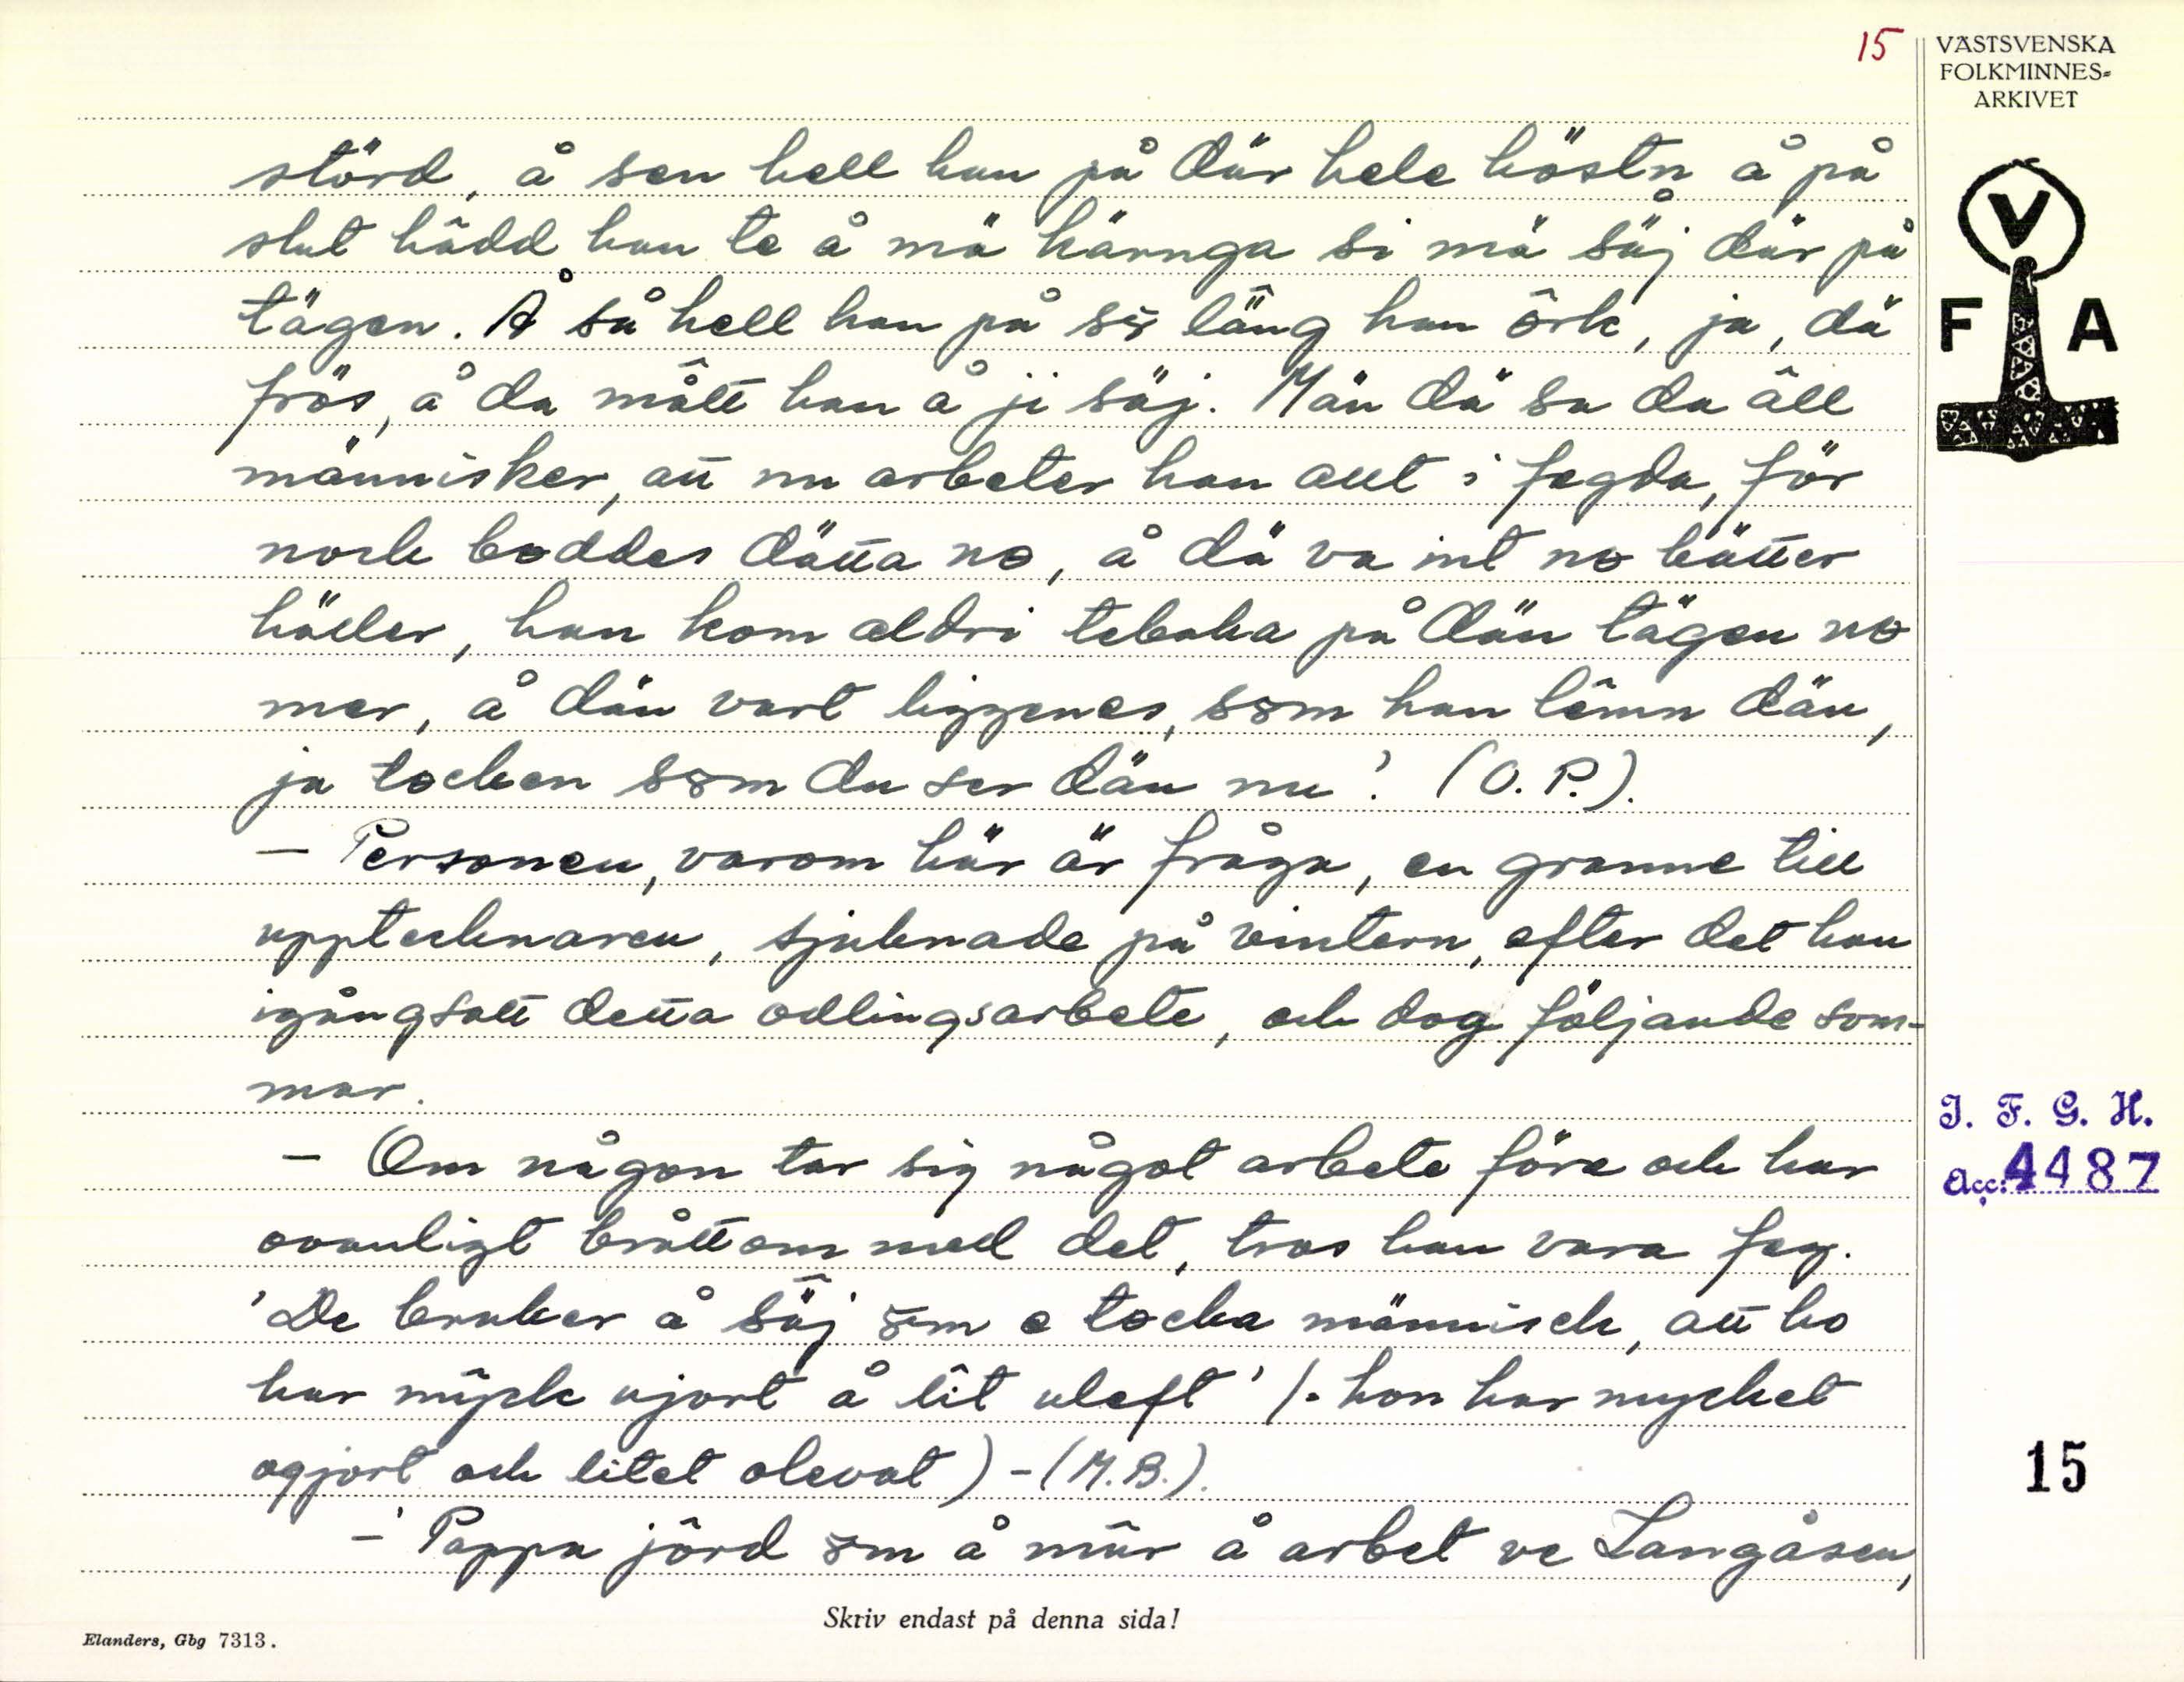 15
VÄSTSVENSKA
FOLKMINNES=
ARKIVET
V
F A
störd, å sen hell han på där hele höstn å på
slut hädd han te å mä kärnga si mä säj där på
tägen. Å så hell han på så läng han ôrk, ja, dä
frös, å da mått han å ji säj. Män dä sa da äll
människer, att nu arbeter han allt i fegda, för
nock boddes dätta no, å dä va int no bätter
häller, han kom aldri tebaka på dän tägen no
mer, å dän vart liggenes, som han lêmn dän,
ja tocken som du ser dän nu'. (O. P.).
– Personen, varom här är fråga, en granne till
upptecknaren, sjuknade på vintern, efter det han
igångsatt detta odlingsarbete, och dog följande som-
mar.
– Om någon tar sig något arbete före och har
ovanligt bråttom med det, tros han vara feg.
'De bruker å säj om e tocka männisch, att ho
har mŷck ujort å lît uleft' (= hon har mycket
ogjort och litet olevat) – (M. B.).
– 'Pappa jôrd om å mûr å arbet ve Langåsen,
I. F. G. H.
Acc: 4487
15
Skriv endast på denna sida!
Elanders, Gbg 7313.